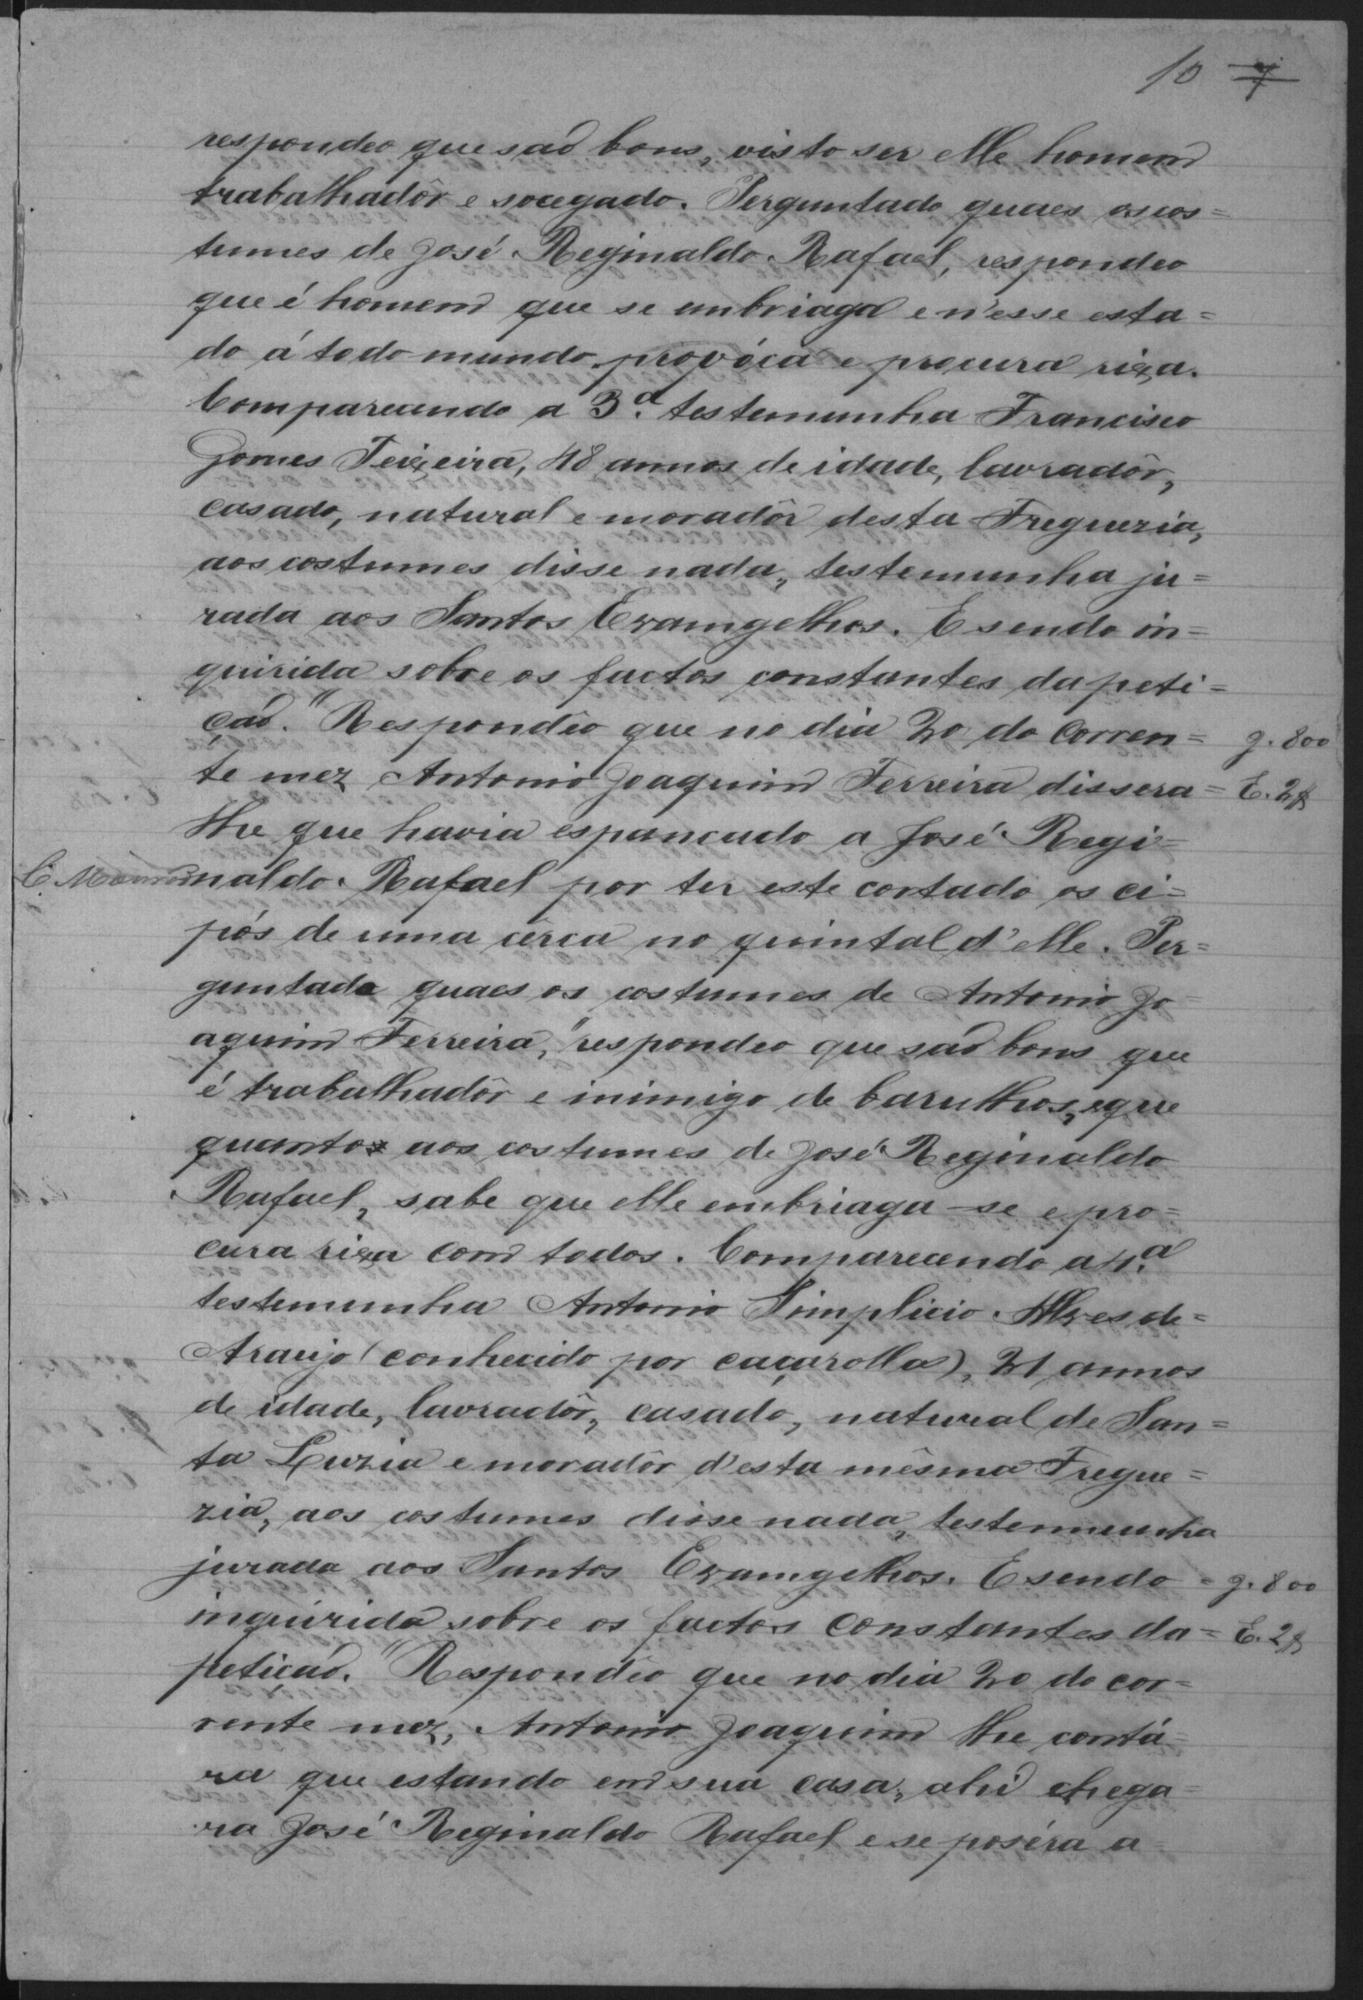 10 7
respondeo que saõ bons, visto ser elle homem
trabalhadôr e socegado. Perguntado quaes os cos=
tumes de José Reginaldo Rafael, respondeo
que é homem que se embriaga e n'esse esta=
do á todo mundo provóca e procura rixa.
Comparecendo a 3.ª testemunha Francisco
Gomes Teixeira, 48 annos de idade, lavradôr,
casado, natural e moradôr desta Freguezia,
aos costumes disse nada, testemunha ju=
rada aos Santos Evamgelhos. E sendo in=
quirida sobre os factos constantes da peti=
çaõ. "Respondêo que no dia 20 do corren= g. 800
te mez Antonio Joaquim Ferreira dissera= E. 2$
lhe que havia espancado a José Regi=
naldo Rafael por ter este cortado os ci=
pós de uma cêrca no quintal d'elle. Per=
guntada quaes os costumes de Antonio Jo
aquim Ferreira, "respondeo que saõ bons que
é trabalhadôr e inimigo de barulhos, e que
quanto aos costumes de José Reginaldo
Rafael, sabe que elle embriaga-se e pro=
cura rixa com todos. Comparecendo a 4.ª
testemunha Antonio Simplicio Alves de=
Araujo (conhecido por caçarolla), 21 annos
de idade, lavradôr, casado, natural de San=
ta Luzia e moradôr d'esta mêsma Fregue=
zia, aos costumes disse nada, testemunha
jurada aos Santos Evamgelhos. E sendo = g. 800
inquirida sobre os factos constantes da= E. 2$
petiçaõ. "Respondêo que no dia 20 do cor=
rente mez, Antonio Joaquim lhe contá=
ra que estando em sua casa, ahi chega=
ra José Reginaldo Rafael e se poséra a